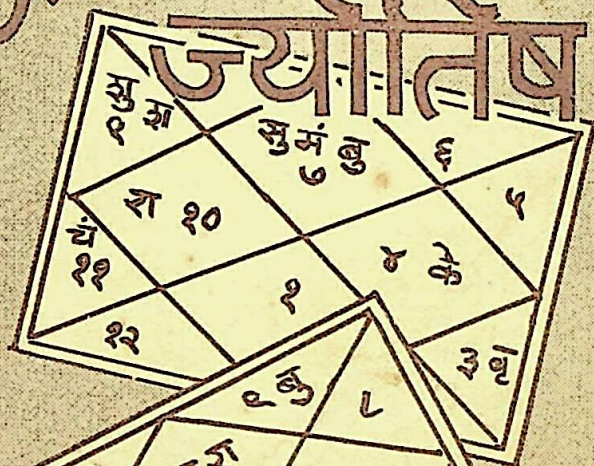 ज्योतिष
सु मं बु
७
६
५
९
रा १०
चं
११
१
४ के
१२
३ बृ
९ बु
८